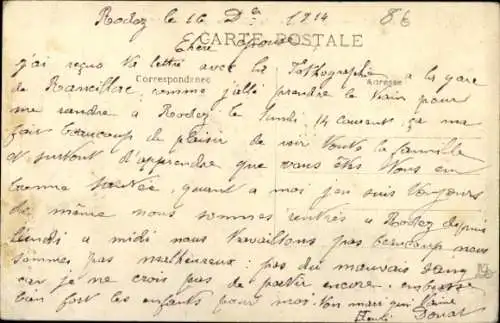 Rodez le 16 Dbe 1914
86
CARTE POSTALE
Chere épouse
Correspondance
Adresse
j'ai reçu ta lettre avec la Fothographie a la gare
de Ranceillac comme j'allé prendre le train pour
me randre a Rodez le lundi 14 courent, ça ma
fait beaucoup de plaisir de voir toute la famille
et surtout d'apprendre que vous êtes tous en
bonne santée, quant a moi jen suis toujours
de même nous sommes rentrés a Rodez depuis
lundi a midi nous travaillons pas beaucoup nous
sommes pas malheureux: pas du mauvais sang
car je ne crois pas de partir encore. embrasse
bien fort les enfants pour moi. ton mari qui t'aime
Donat